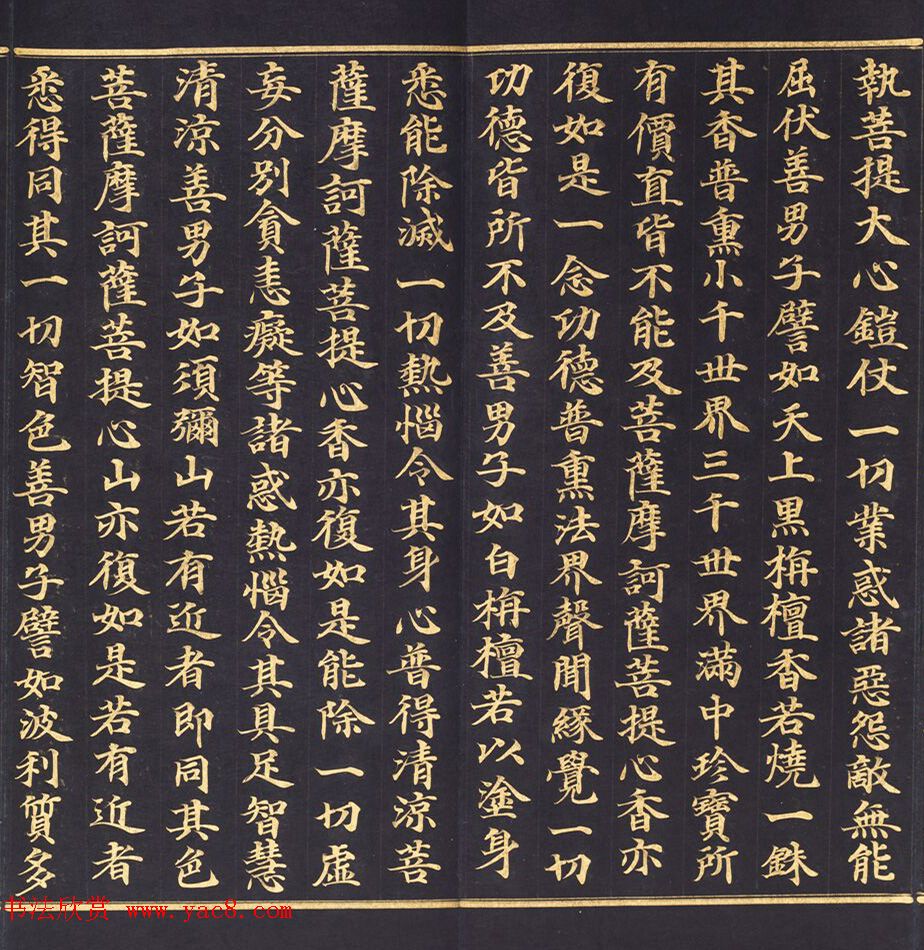 執菩提大心鎧仗一切業惑諸惡怨敵無能
屈伏善男子譬如天上黑栴檀香若燒一銖
其香普熏小千世界三千世界滿中珍寶所
有價直皆不能及菩薩摩訶薩菩提心香亦
復如是一念功德普熏法界聲聞緣覺一切
功德皆所不及善男子如白栴檀若以塗身
悉能除滅一切熱惱令其身心普得清涼菩
薩摩訶薩菩提心香亦復如是能除一切虛
妄分別貪恚癡等諸惑熱惱令其具足智慧
清涼善男子如須彌山若有近者即同其色
菩薩摩訶薩菩提心山亦復如是若有近者
悉得同其一切智色善男子譬如波利質多
书法欣赏 www.yac8.com